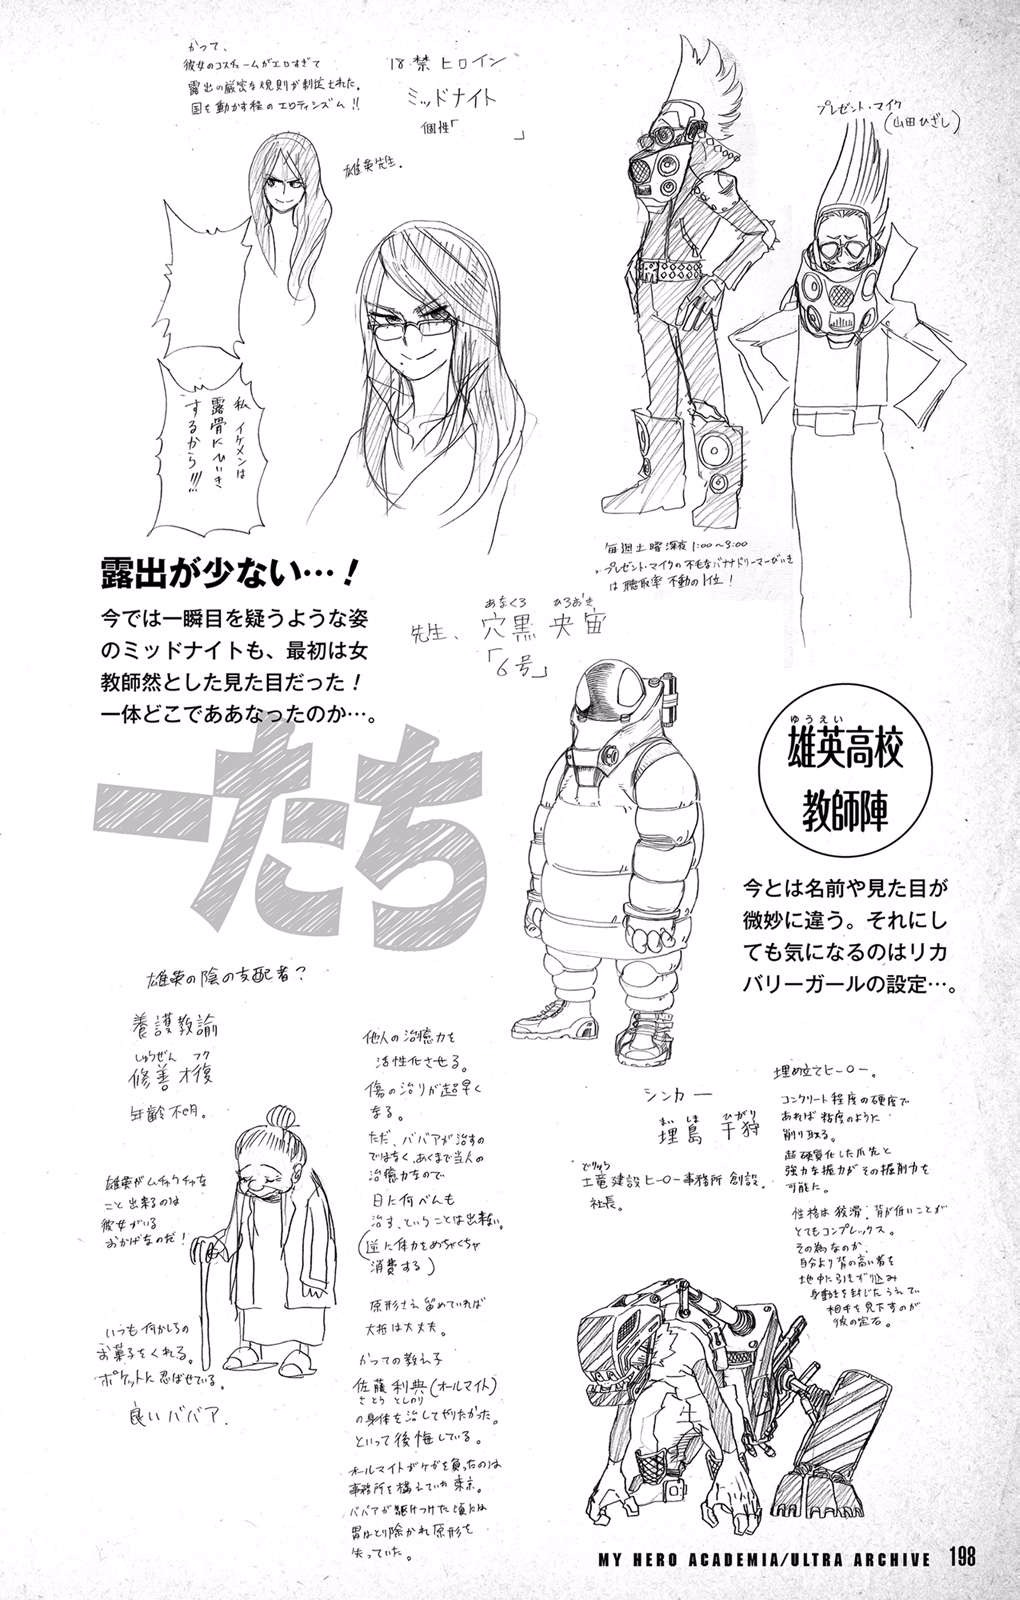 かつて、
彼女のコスチュームがエロすぎて
露出の厳密な規則が制定された。
国を動かす程のエロティシズム!!
18禁ヒロイン
ミッドナイト
個性「　　　」
雄英先生。
私 イケメンは
露骨にひいき
するから!!!
プレゼント・マイク
(山田ひざし)
毎週土曜深夜1:00〜3:00
プレゼント・マイクの
は聴取率 不動の1位!
露出が少ない…!
今では一瞬目を疑うような姿
のミッドナイトも、最初は女
教師然とした見た目だった!
一体どこでああなったのか…。
先生、
あなくろ ひろおき
穴黒 央宙
「6号」
ーたち
ゆうえい
雄英高校
教師陣
今とは名前や見た目が
微妙に違う。それにし
ても気になるのはリカ
バリーガールの設定…。
雄英の陰の支配者?
養護教諭
しゅうぜん フク
修善 才復
年齢不明。
雄英がムチャクチャな
こと出来るのは
彼女がいる
おかげなのだ!
いつも何かしろの
お菓子をくれる。
ポケットに忍ばせている。
良いババア。
他人の治癒力を
活性化させる。
傷の治りが超早く
なる。
ただ、ババアが治すの
ではなく、あくまで当人の
治癒力なので
日に何べんも
治す、ということは出来ない。
(逆に体力をめちゃくちゃ
消費する)
原形さえ留めていれば
大抵は大丈夫。
かつての教え子
佐藤利典(オールマイト)
さとう としのり
の身体を治してやりたかった。
といって後悔している。
オールマイトがケガを負ったのは
事務所を構えていた東京。
ババアが駆けつけた頃には
胃はとり除かれ原形を
失っていた。
シンカー
まいしま ひがり
埋島 干狩
でりゅう
土竜建設ヒーロー事務所 創設。
社長。
埋め立てヒーロー。
コンクリート程度の硬度で
あれば粘度のように
削り取る。
超硬質化した爪先と
強力な握力がその掘削力を
可能に。
性格は狡滑。背が低いことが
とてもコンプレックス。
その為なのか、
自分より背の高い者を
地中に引きずり込み
身動きを封じたうえで
相手を見下すのが
彼の定石。
MY HERO ACADEMIA/ULTRA ARCHIVE 198